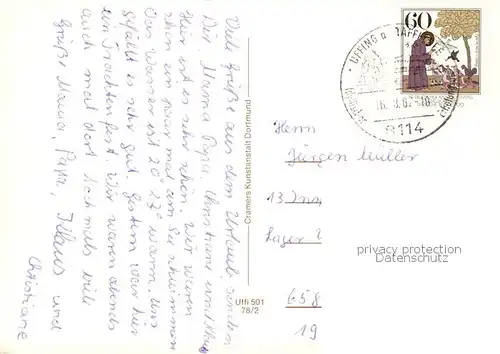 Viele Grüße aus dem Urlaub senden
Dir, Mama Papa, Christiane und Klaus
Hier ist es sehr schön. Wir waren
schon ein paar mal am See schwimmen
Das Wasser ist 20° 23° warm. Uns
gefällt es sehr gut. Gestern war hier
ein Trachtenfest. Wir waren abends
auch mal dort. Nochmals viele
Grüße Mama, Papa, Klaus und
Christiane
Cramers Kunstanstalt Dortmund
Uffi 501
78/2
UFFING a. STAFFELSEE
8114
60
Herrn
Jürgen Müller
13 Inn
Lager 2
658
19
privacy protection
Datenschutz